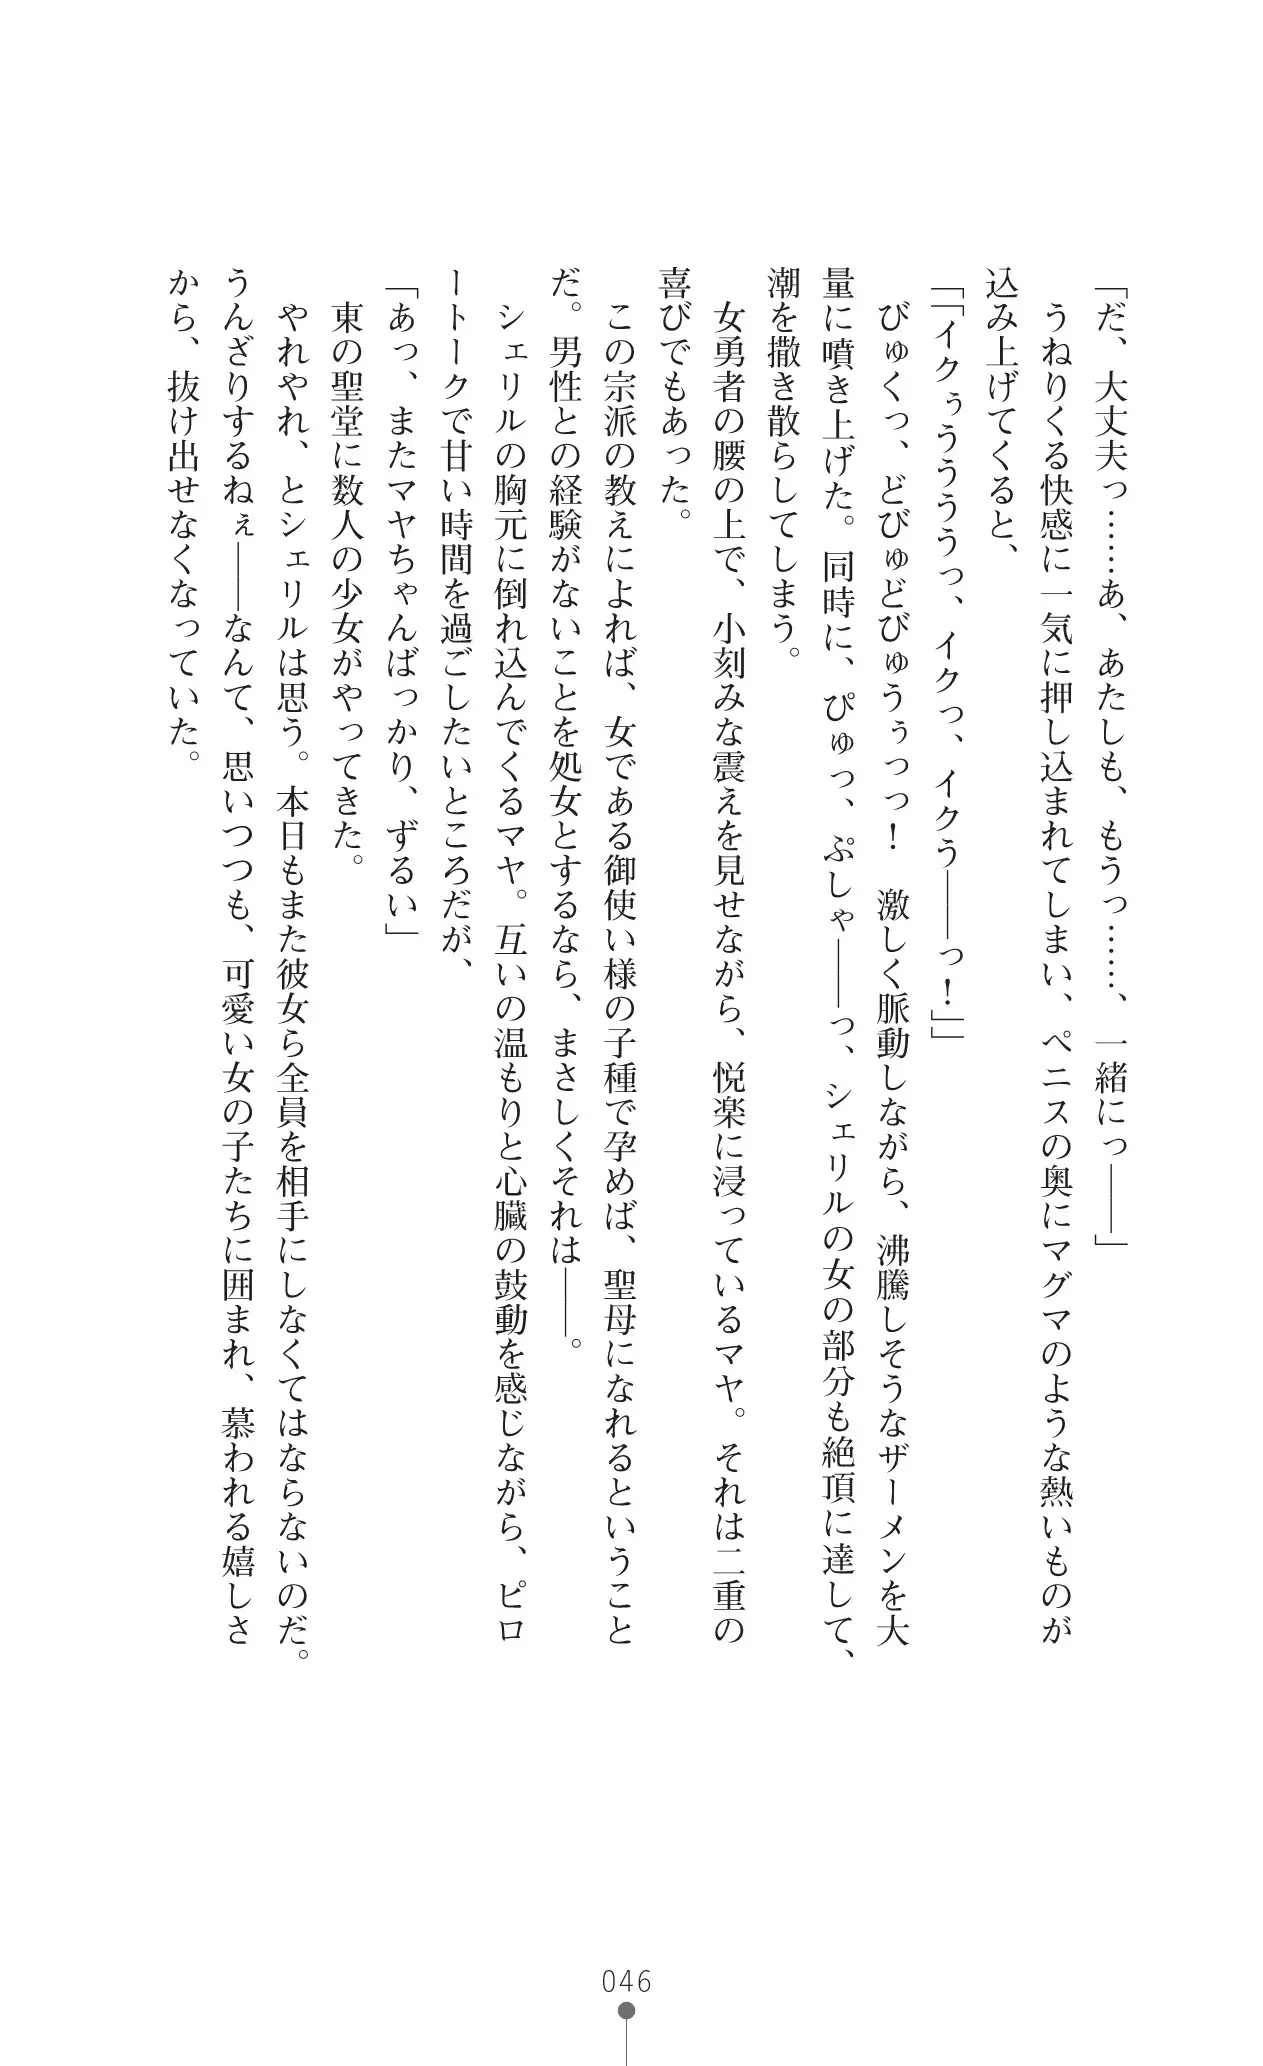 「だ、大丈夫っ……あ、あたしも、もうっ……、一緒にっ――」
うねりくる快感に一気に押し込まれてしまい、ペニスの奥にマグマのような熱いものが
込み上げてくると、
「「イクぅうううっ、イクっ、イクう――っ！」」
びゅくっ、どびゅどびゅうぅっっ！　激しく脈動しながら、沸騰しそうなザーメンを大
量に噴き上げた。同時に、ぴゅっ、ぷしゃ――っ、シェリルの女の部分も絶頂に達して、
潮を撒き散らしてしまう。
女勇者の腰の上で、小刻みな震えを見せながら、悦楽に浸っているマヤ。それは二重の
喜びでもあった。
この宗派の教えによれば、女である御使い様の子種で孕めば、聖母になれるということ
だ。男性との経験がないことを処女とするなら、まさしくそれは――。
シェリルの胸元に倒れ込んでくるマヤ。互いの温もりと心臓の鼓動を感じながら、ピロ
ートークで甘い時間を過ごしたいところだが、
「あっ、またマヤちゃんばっかり、ずるい」
東の聖堂に数人の少女がやってきた。
やれやれ、とシェリルは思う。本日もまた彼女ら全員を相手にしなくてはならないのだ。
うんざりするねぇ――なんて、思いつつも、可愛い女の子たちに囲まれ、慕われる嬉しさ
から、抜け出せなくなっていた。
046